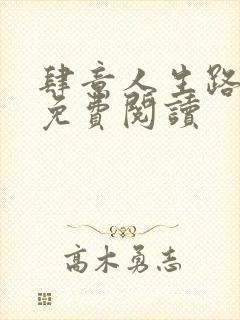 肆意人生路
免費閱讀
高木勇志